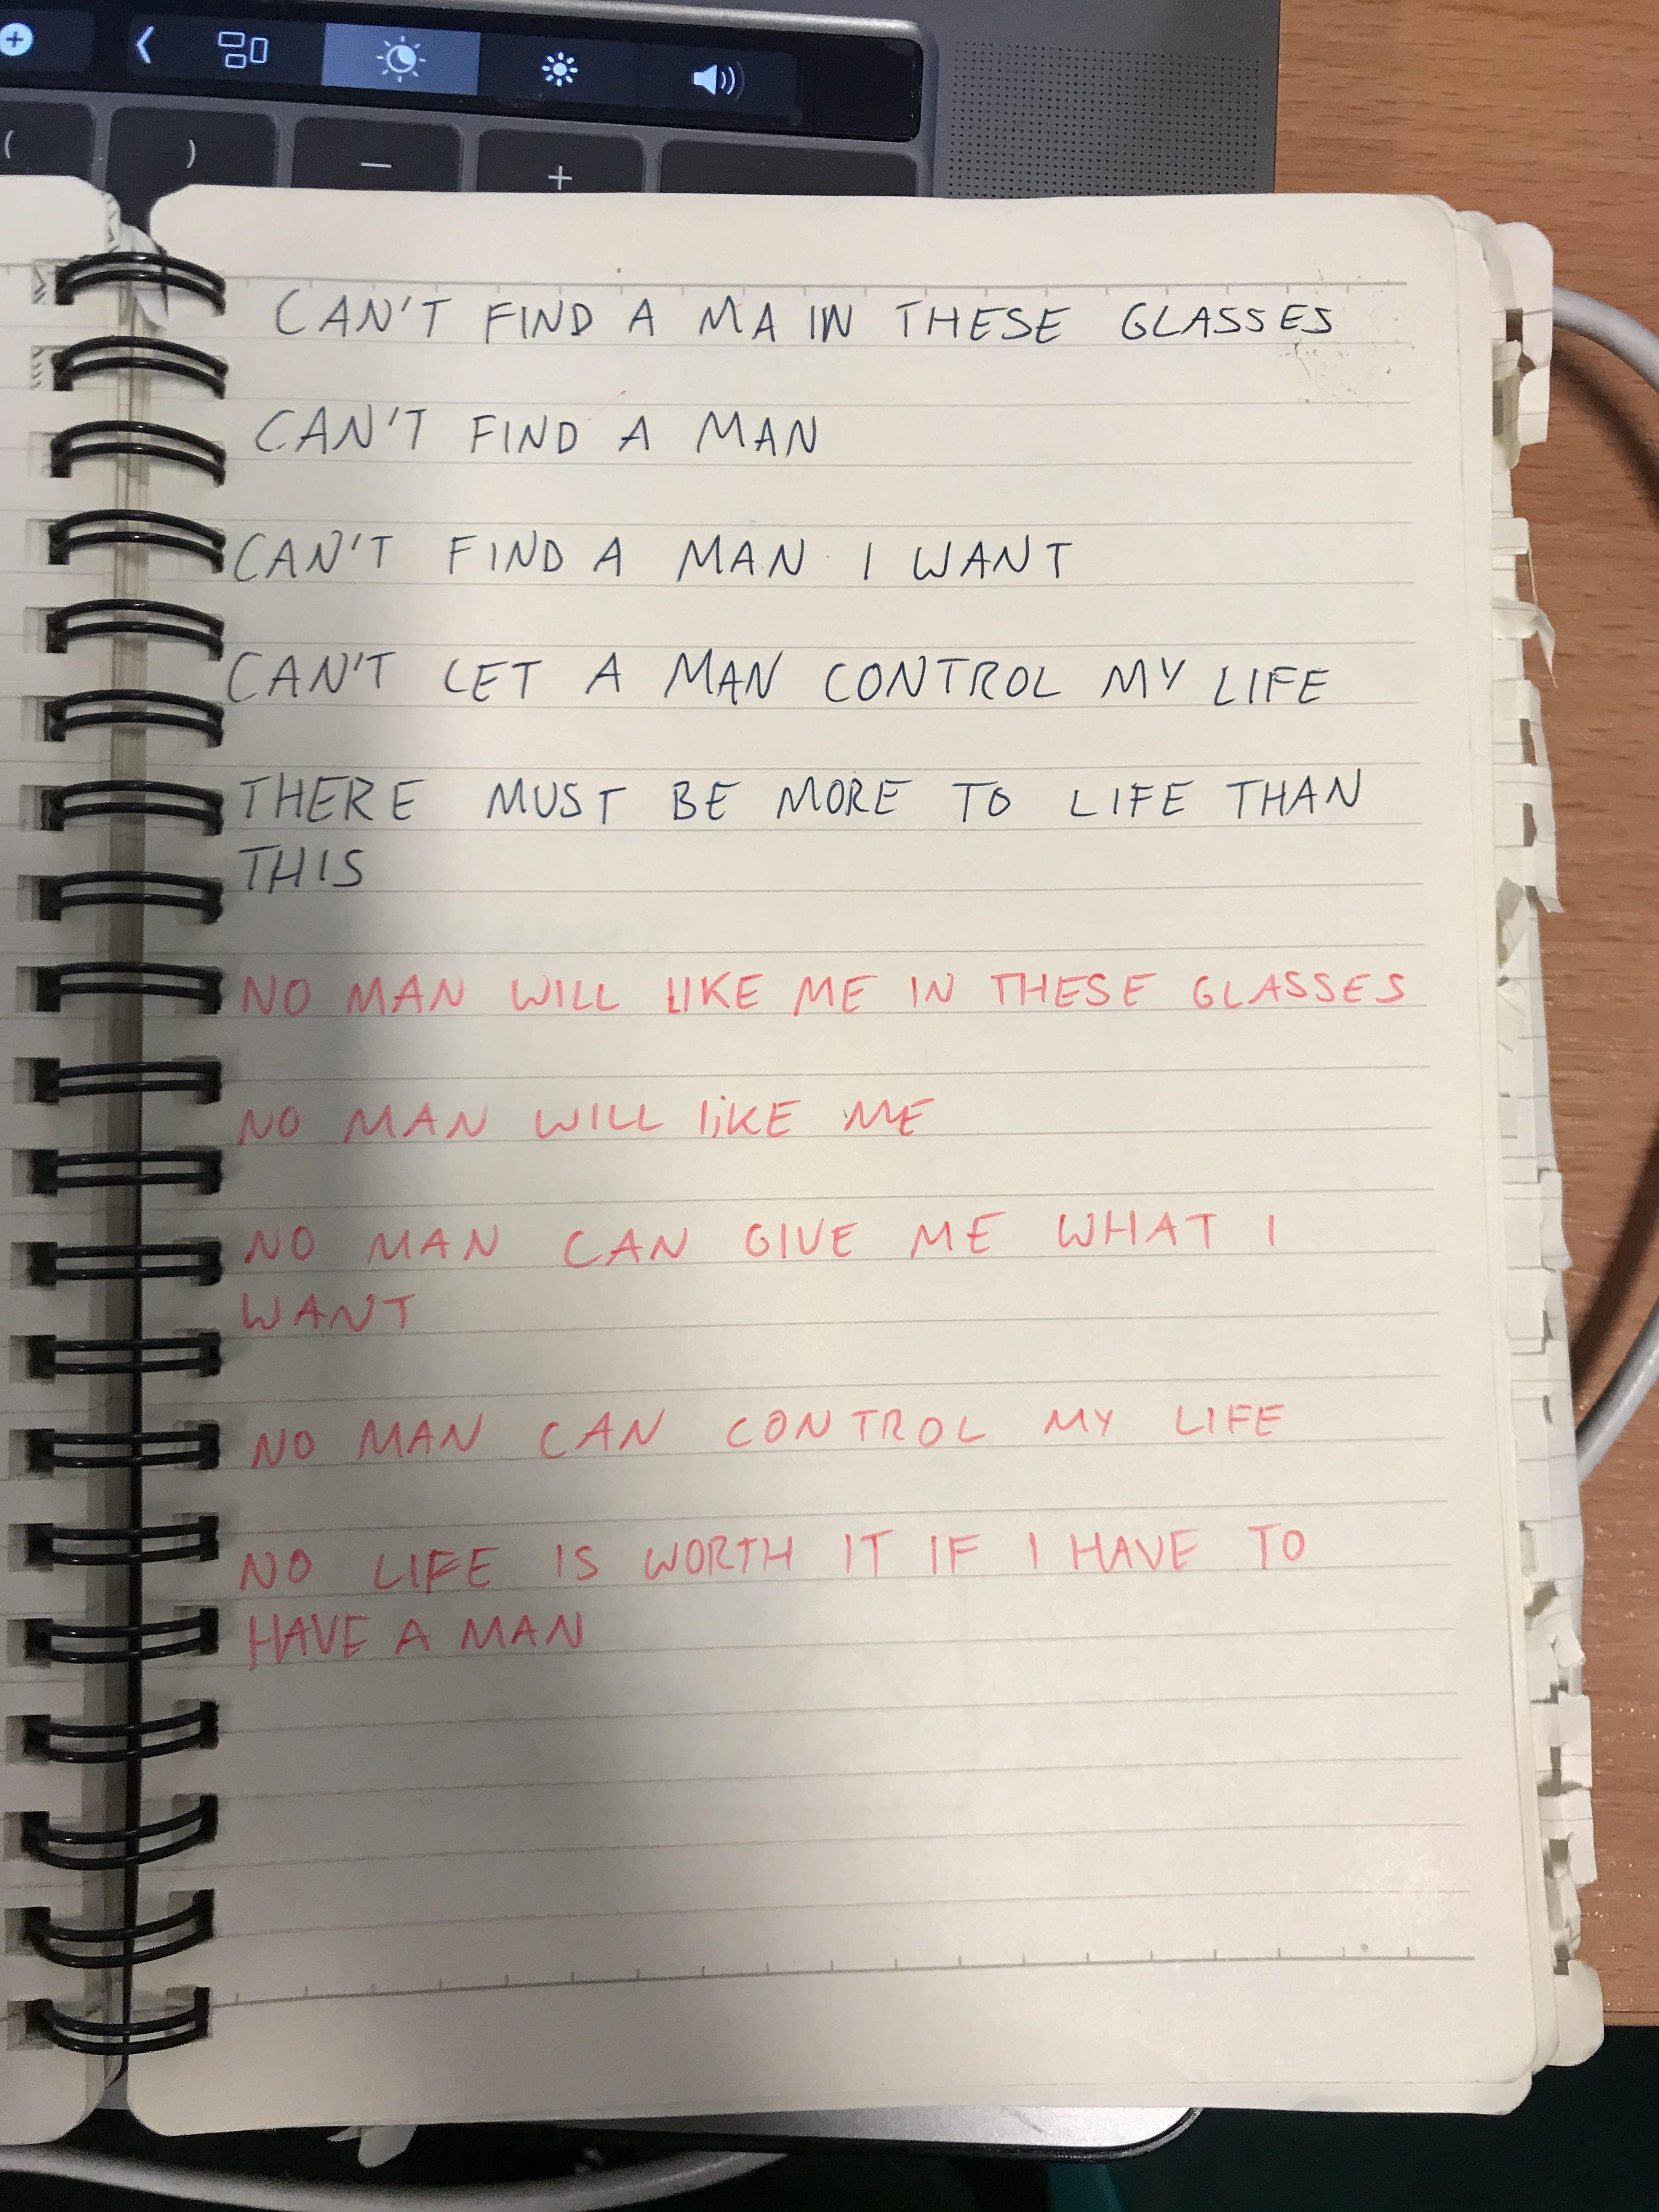 ( ) — +
CAN'T FIND A MA IN THESE GLASSES
CAN'T FIND A MAN
CAN'T FIND A MAN I WANT
CAN'T LET A MAN CONTROL MY LIFE
THERE MUST BE MORE TO LIFE THAN
THIS
NO MAN WILL LIKE ME IN THESE GLASSES
NO MAN WILL liKE ME
NO MAN CAN GIVE ME WHAT I
WANT
NO MAN CAN CONTROL MY LIFE
NO LIFE IS WORTH IT IF I HAVE TO
HAVE A MAN